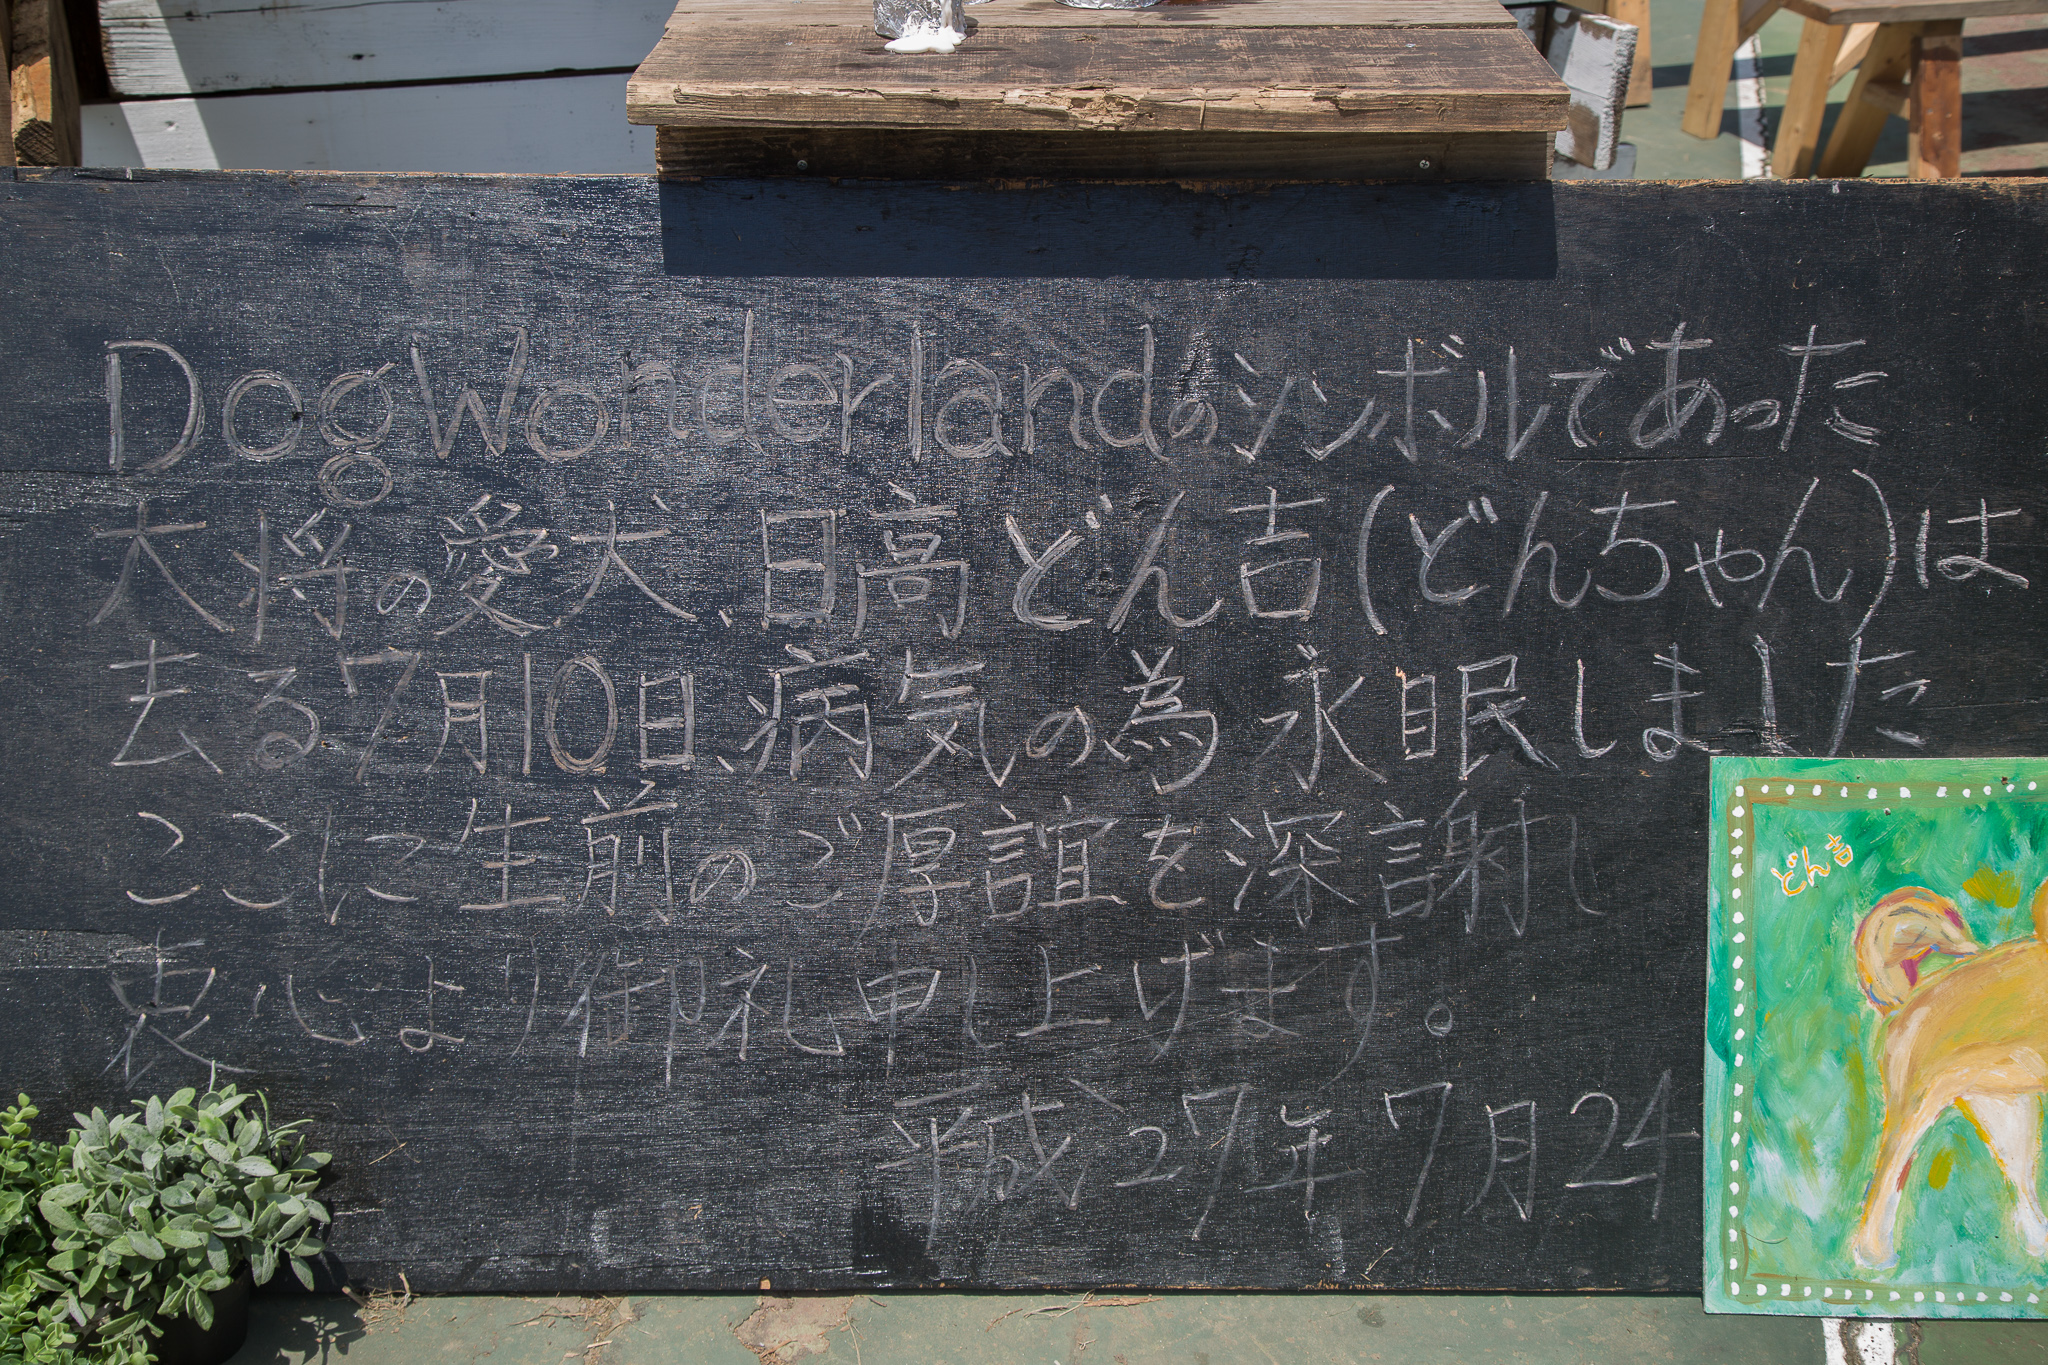 DogWonderlandのシンボルであった
大将の愛犬、日高どん吉(どんちゃん)は
去る7月10日、病気の為 永眠しました
ここに生前のご厚誼を深謝し
衷心より御礼申し上げます。
平成27年7月24
どん吉